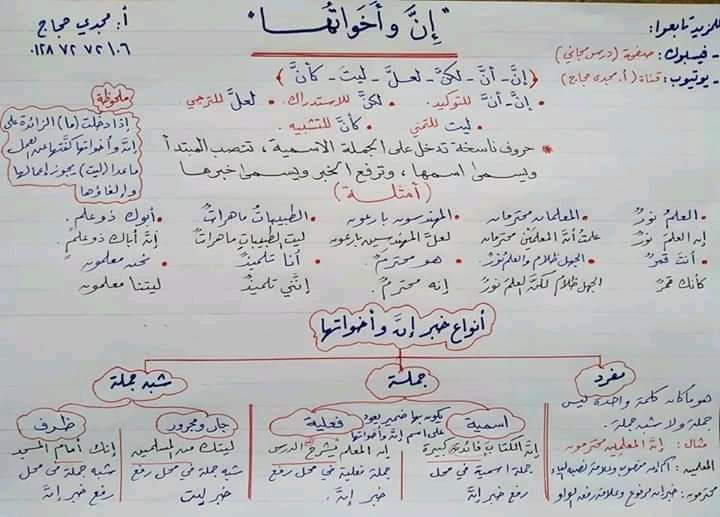 للمزيد تابعوا:
- فيسبوك: صفحة (درس مجاني)
- يوتيوب: قناة (أ. مجدي حجاج)
"إنَّ وأخواتها"
أ: مجدي حجاج
٠١٢٨ ٧٢ ٧٢ ١٠٦
(إنَّ - أنَّ - لكنَّ - لعلَّ - ليتَ - كأنَّ)
• إنَّ - أنَّ للتوكيد. • لكنَّ للاستدراك. • لعلَّ للترجي.
• ليت للتمني • كأنَّ للتشبيه.
* حروف ناسخة تدخل على الجملة الاسمية، تنصب المبتدأ
ويسمى اسمها، وترفع الخبر ويسمى خبرها
ملحوظة
إذا دخلت (ما) الزائدة على
إنَّ وأخواتها كفَّتها عن العمل
ماعدا (ليت) يجوز إعمالها
وإلغاؤها
(أمثلة)
• العلمُ نورٌ • المعلمان محترمان • المهندسون بارعون • الطبيباتُ ماهراتٌ • أبوك ذو علمٍ.
إن العلمَ نورٌ علمتُ أنَّ المعلمَيْن محترمان لعلَّ المهندسين بارعون ليت الطبيباتِ ماهراتٌ إنَّ أباك ذو علمٍ.
• أنتَ قمرٌ • الجهل ظلام والعلم نورٌ • هو محترمٌ. • أنا تلميذٌ • نحن معلمون
كأنك قمرٌ الجهل ظلام لكنَّ العلم نورٌ إنه محترمٌ. إنَّني تلميذٌ ليتنا معلمون
أنواع خبر إنَّ وأخواتها
مفرد
هو ما كان كلمة واحدة ليس
جملة ولا شبه جملة.
مثال: إنَّ المعلمين محترمون
المعلمين: اسم إن منصوب وعلامة نصبه الياء
محترمون: خبر إن مرفوع وعلامة رفعه الواو
جملة
يكون بها ضمير يعود
على اسم إنَّ وأخواتها
اسمية
إنَّ الكتابَ فائدته كبيرة
جملة اسمية في محل
رفع خبر إنَّ
فعلية
إن المعلم يشرح الدرس
جملة فعلية في محل رفع
خبر إنَّ.
شبه جملة
جار ومجرور
ليتك من المسلمين
شبه جملة في محل رفع
خبر ليت
ظرف
إنك أمام المسجد
شبه جملة في محل
رفع خبر إنَّ